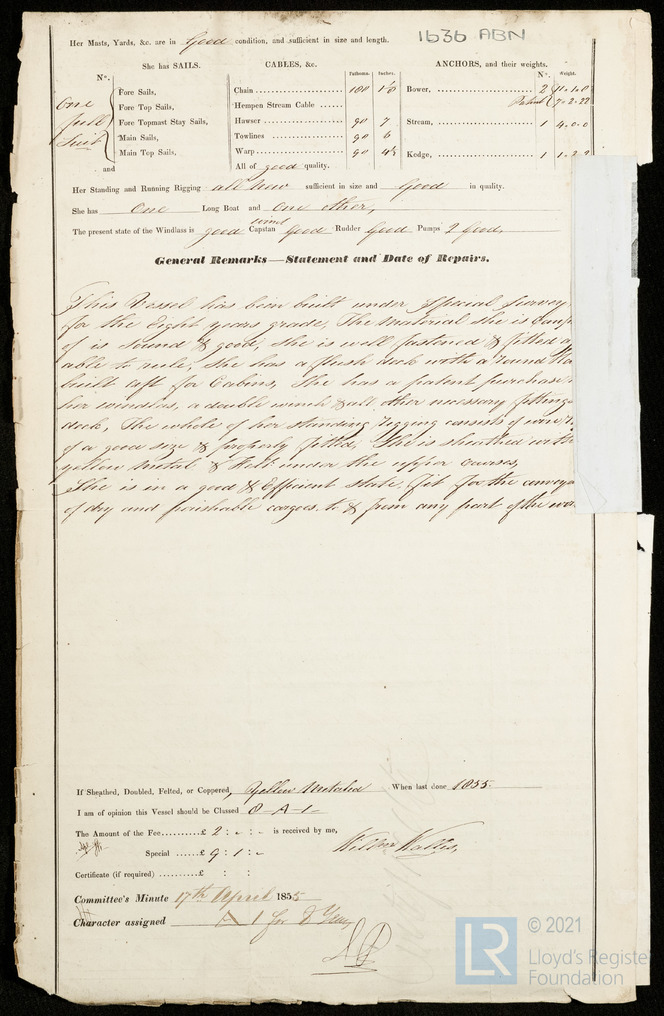 1636 ABN
Her Masts, Yards, &c. are in Good condition, and sufficient in size and length.
She has SAILS. CABLES, &c. ANCHORS, and their weights.
N°. Fathoms. Inches. N°. Weight.
one full Suit
Fore Sails,
Fore Top Sails,
Fore Topmast Stay Sails,
Main Sails,
Main Top Sails,
and
Chain 100
Hempen Stream Cable
Hawser 90 7
Towlines 90 6
Warp 90 4½
All of good quality.
Bower, 2 11.1.0
Patent 7.2.22
Stream, 1 4.0.0
Kedge, 1
Her Standing and Running Rigging all new sufficient in size and Good in quality.
She has One Long Boat and one other,
The present state of the Windlass is good wind Capstan Good Rudder Good Pumps 2 Good,
General Remarks—Statement and Date of Repairs.
This Vessel has been built under Special Survey
for the Eight years grade, The Material she is
of is sound & good, she is well fastened & fitted
able to rule, she has a flush deck with a round
built aft for Cabins, She has a patent purchase
her windlass, a double winch & all other necessary fittings
deck, The whole of her standing rigging consists of wire
of a good size & properly fitted, She is sheathed with
yellow metal & Felt under the upper courses,
She is in a good & Efficient state, fit for the
of dry and perishable cargoes to & from any part of the
If Sheathed, Doubled, Felted, or Coppered, Yellow Metaled When last done 1855.
I am of opinion this Vessel should be Classed 8 - A - 1 -
The Amount of the Fee..........£ 2 : - : - is received by me,
Special ......£ 9 : 1 : -
Certificate (if required) .........£ : :
Committee's Minute 17th April 1855
Character assigned A 1 for 8 Years
© 2021
LR
Lloyd's Register
Foundation